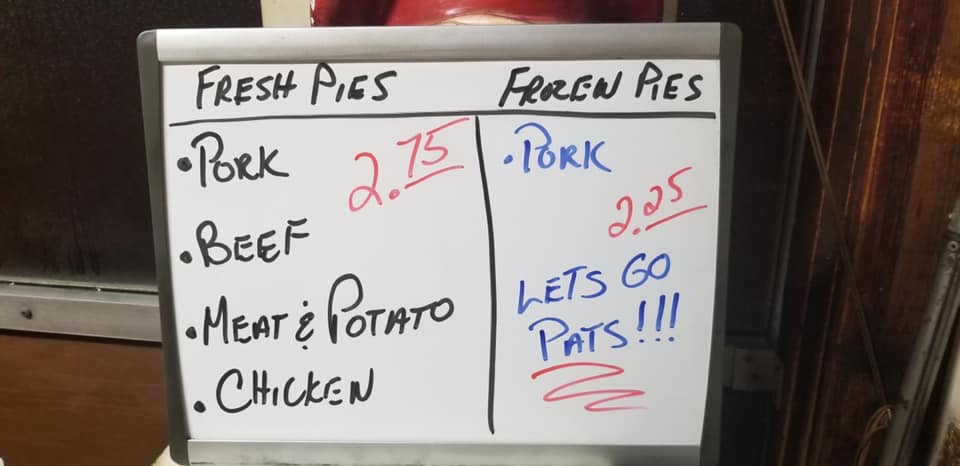 FRESH PIES
• PORK 2.75
• BEEF
• MEAT & POTATO
• CHICKEN
FROZEN PIES
• PORK
2.25
LETS GO
PATS!!!